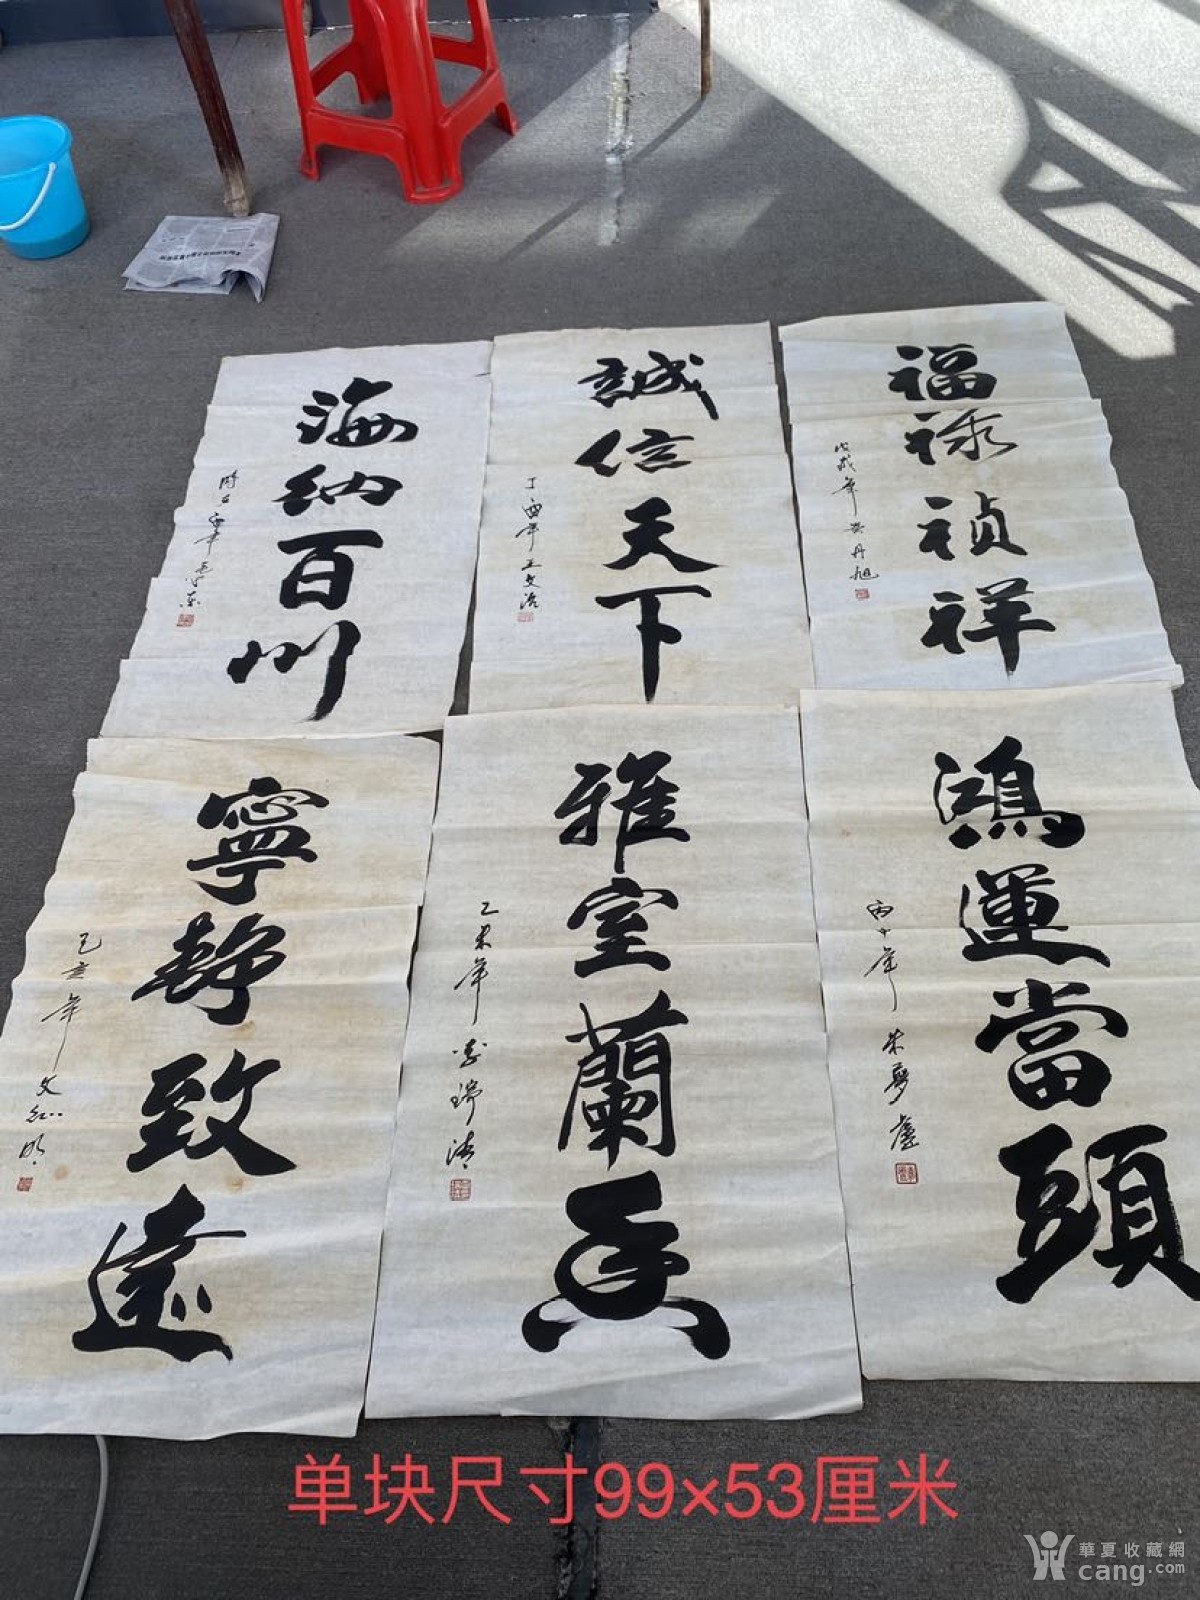 海纳百川
誠信天下
丁酉年王文治
福禄祯祥
戊戌年黄丹旭
寧静致遠
己亥年文征明
雅室蘭香
乙未年李瑞清
鴻運當頭
丙申年朱夢廬
单块尺寸99×53厘米
華夏收藏網
cang.com